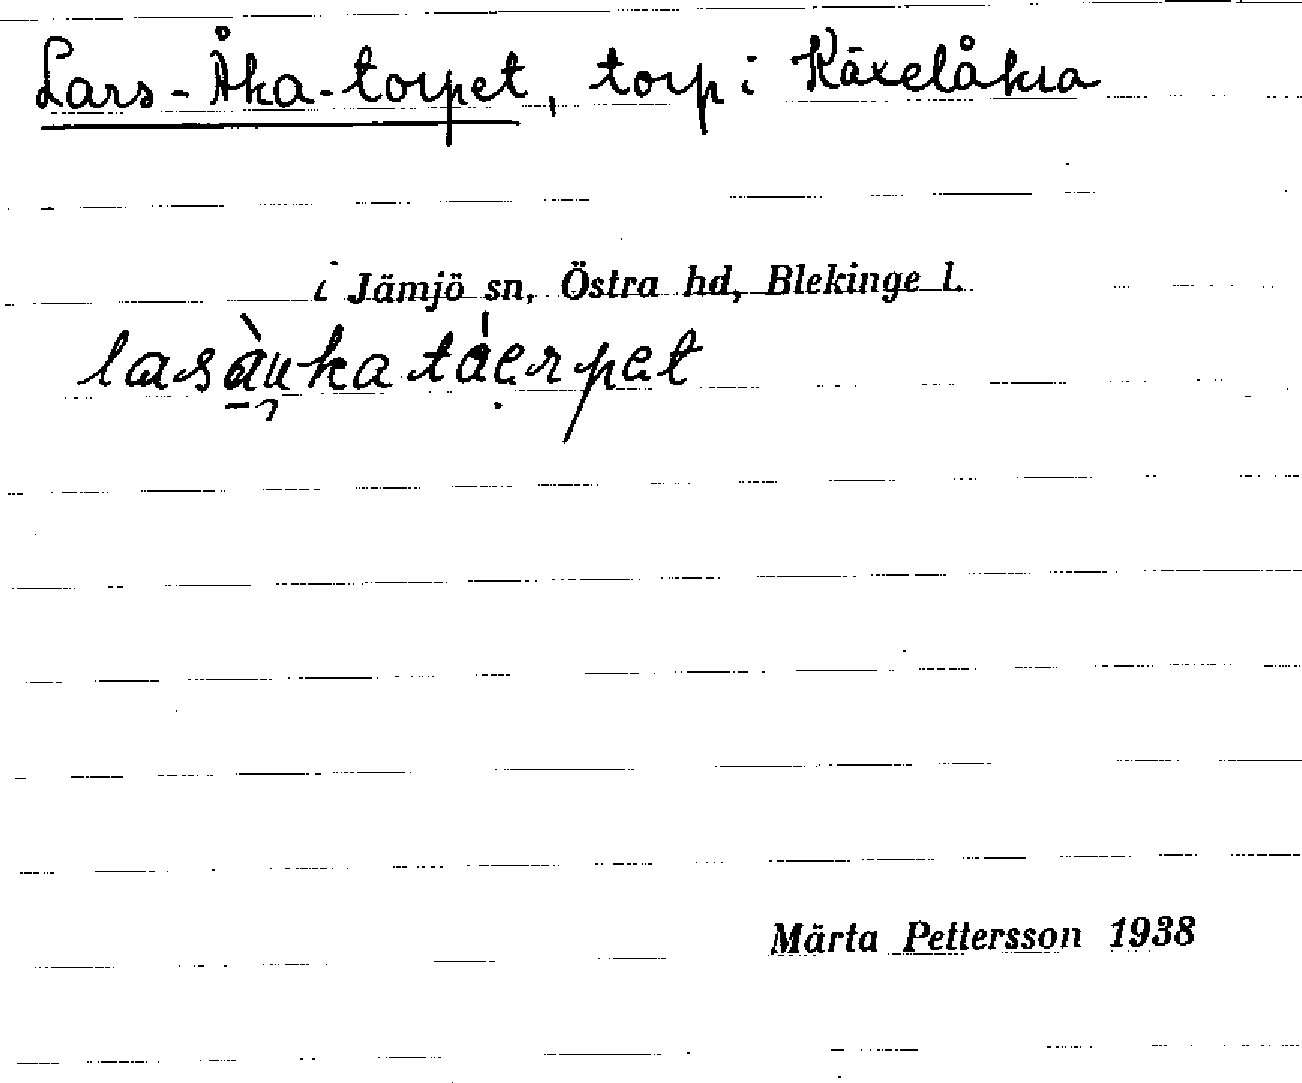 Lars-Åka-torpet, torp i Käxelåkra
i Jämjö sn, Östra hd, Blekinge l.
lasàu̯katáe̩rpet
Märta Pettersson 1938